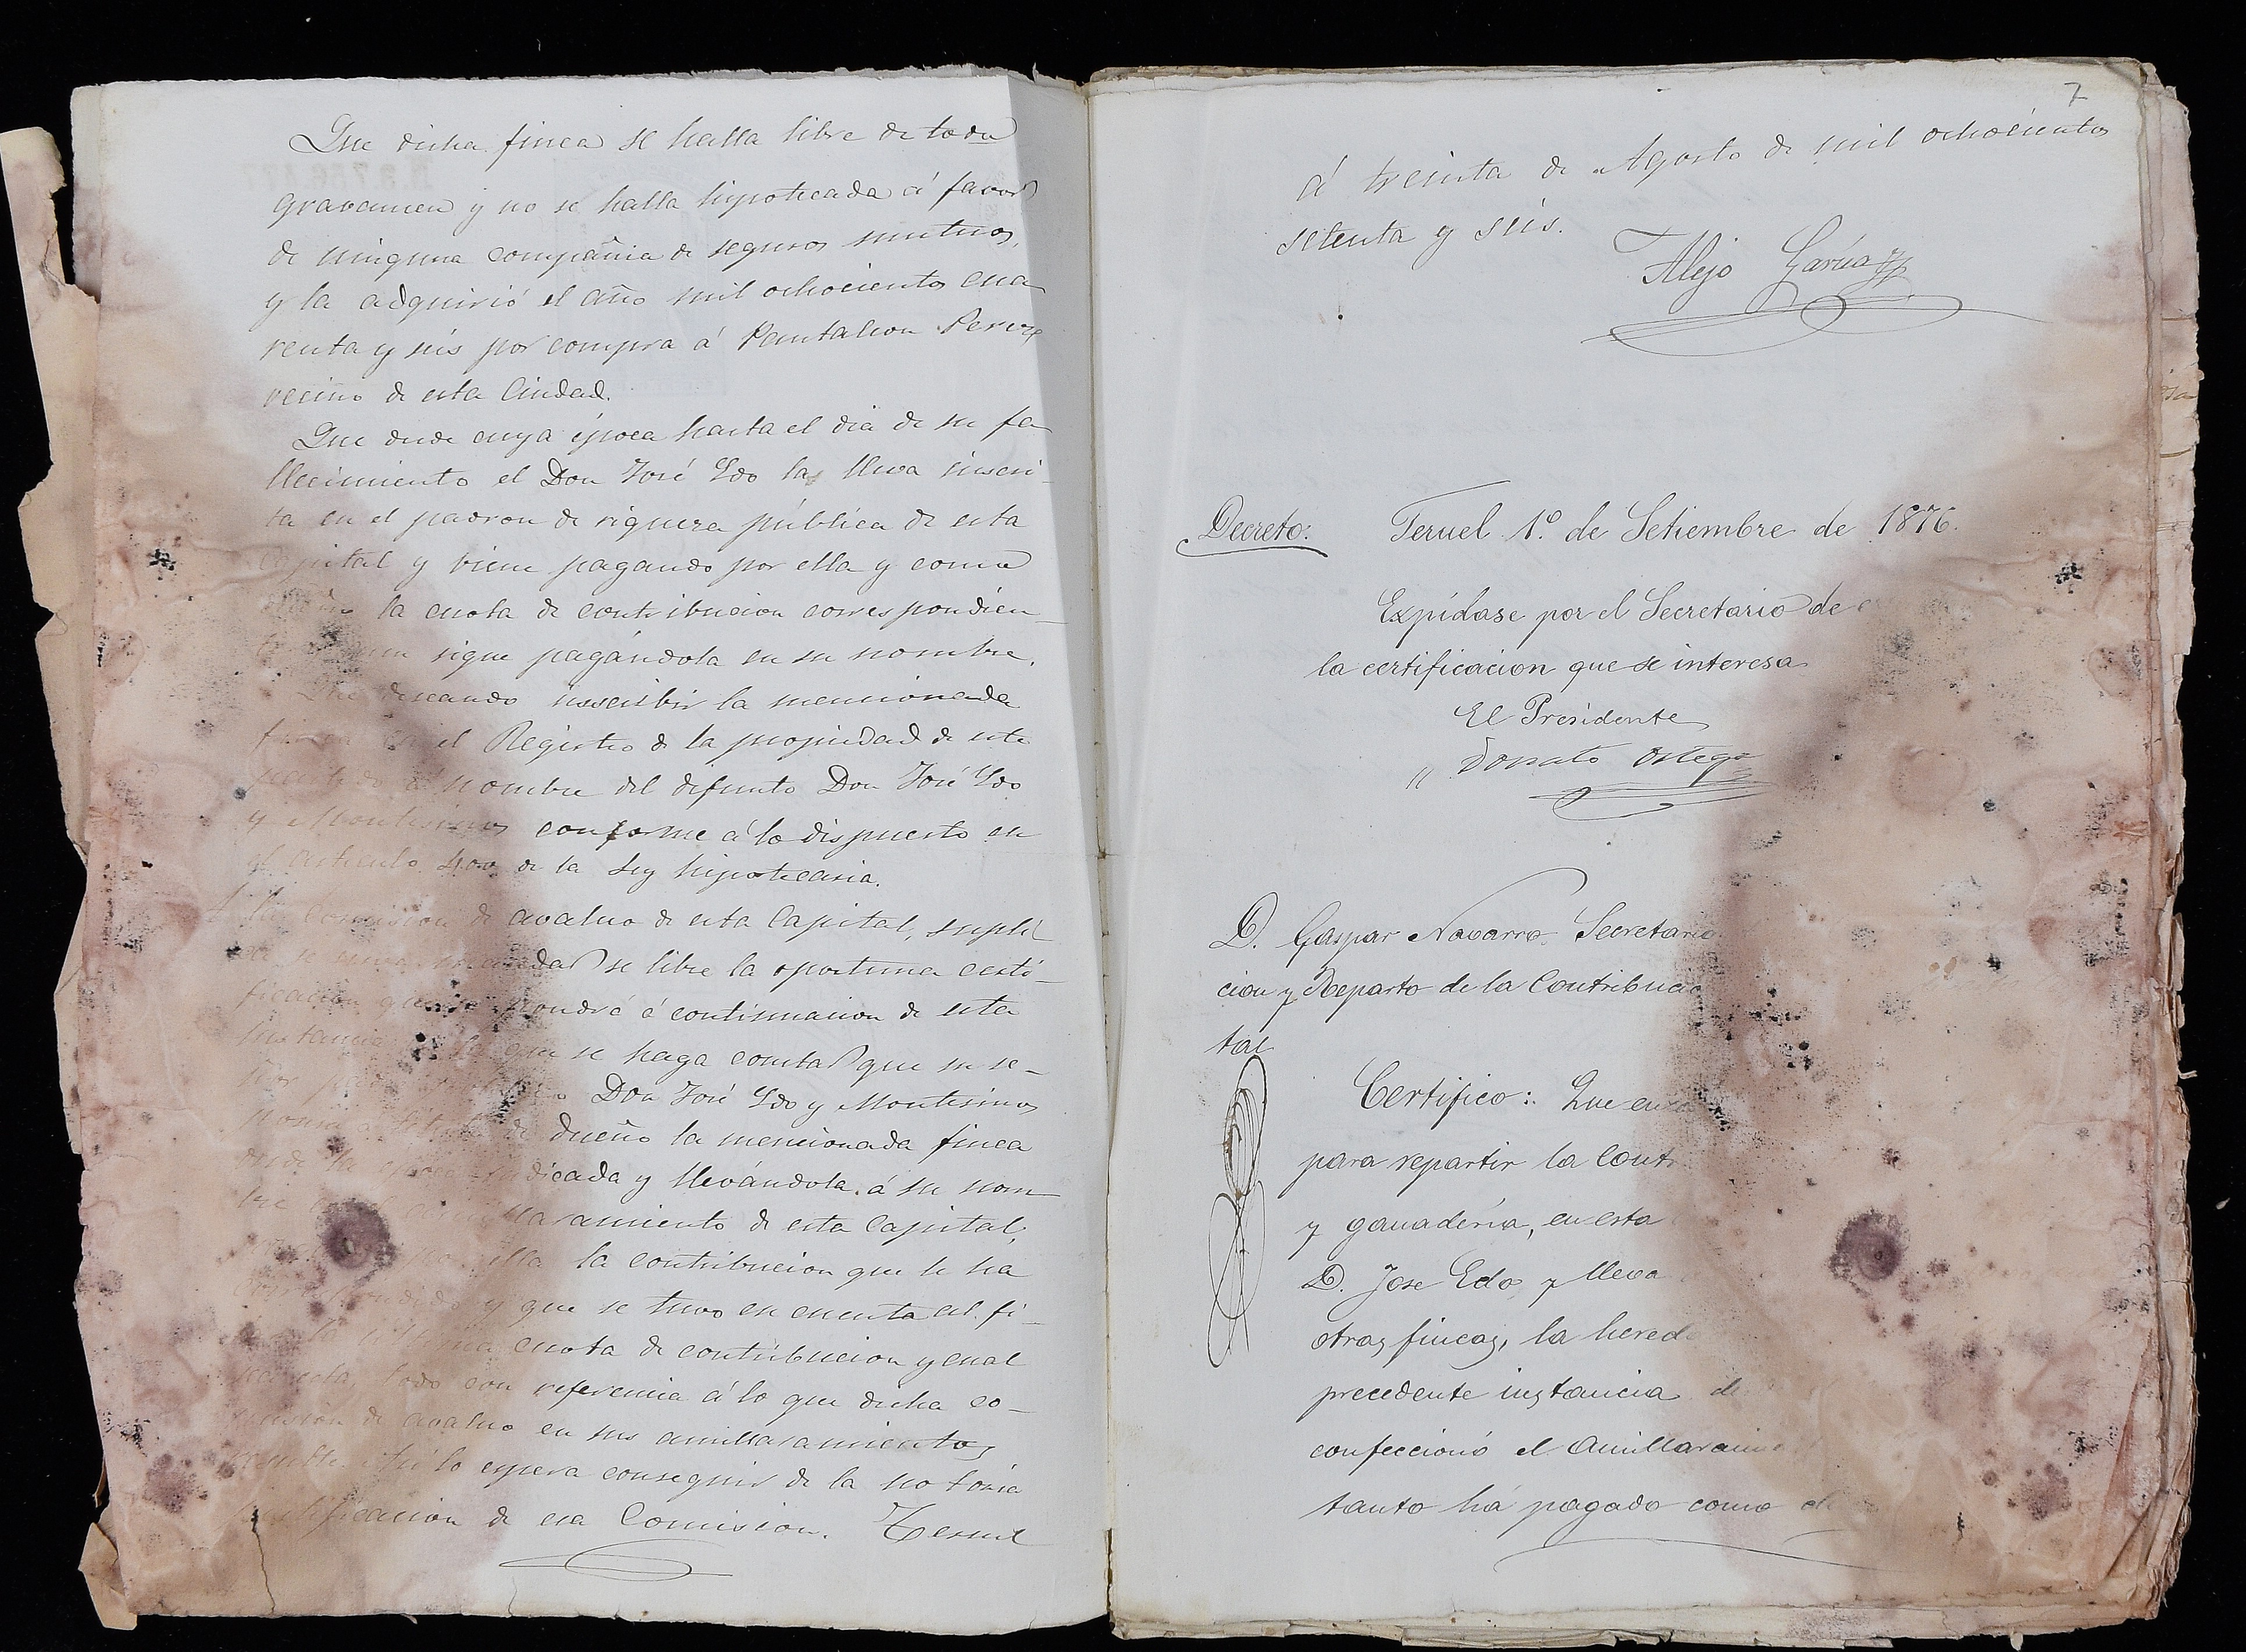 Que dicha finca se halla libre de todo
gravamen y no se halla hipotecada á favor
de ninguna compañia de seguros mutuos,
y la adquirió el año mil ochocientos cua
renta y seis por compra á Pantaleon Perez
vecino de esta Ciudad.
Que desde cuya época hasta el dia de su fa
llecimiento el Don José Edo la lleva inscri-
ta en el padron de riqueza pública de esta
capital y viene pagando por ella y como
la cuota de contribucion correspondien-
sigue pagándola en su nombre.
Que deseando inscribir la mencionada
finca en el Registro de la propiedad de este
partido á nombre del difunto Don José Edo
y Montesinos conforme á lo dispuesto en
el artículo 400 de la Ley hipotecaria.
A la comision de avaluo de esta Capital, supli
ca se sirva mandar se libre la oportuna certi-
ficacion que se pondrá á continuacion de esta
instancia en la que se haga constar que su se-
ñor padre Don José Edo y Montesinos
á título de dueño la mencionada finca
desde la época indicada y llevándola á su nom
bre amillaramiento de esta Capital,
por ella la contribucion que le ha
correspondido y que se tuvo en cuenta al fi-
la última cuota de contribucion y cual
sea esta, todo con referencia á lo que dicha co-
mision de avaluo en sus amillaramientos
resulte. Así lo espera conseguir de la notoria
justificacion de esa Comision. Teruel
7
á treinta de Agosto de mil ochocientos
setenta y seis.
Alejo Garcia
Decreto: Teruel 1º de Setiembre de 1876.
Expídase por el Secretario de
la certificacion que se interesa
El Presidente
Donato Ortega
D. Gaspar Navarro Secretario
cion y Reparto de la Contribucio
tal
Certifico: Que en
para repartir la Contr
y ganadería, en esta
D. Jose Edo y lleva
otras fincas, la hered
precedente instancia de
confeccionó el Amillarami
tanto há pagado como